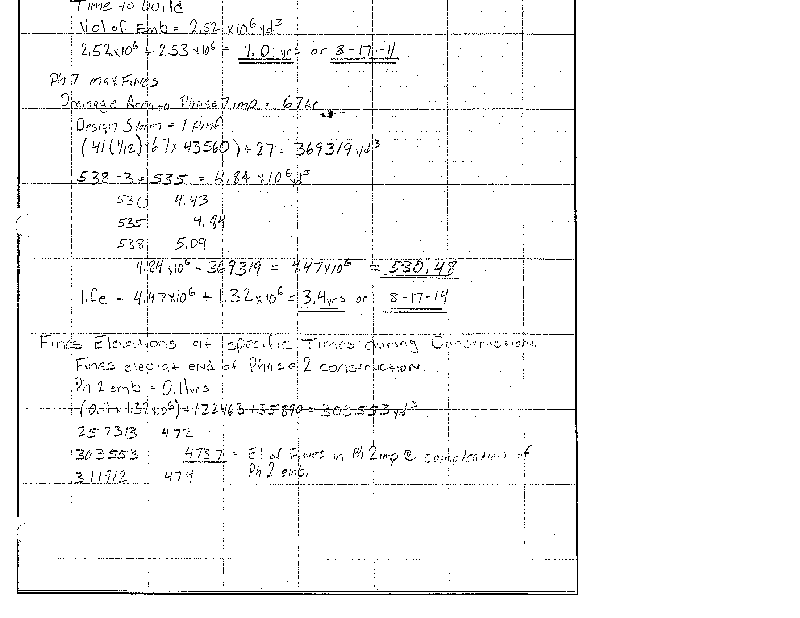 Time to build
Vol of Emb = 2.52 x10⁶ yd³
2.52x10⁶ ÷ 2.53x10⁶ = 1.0 yrs or 8-17-11
Ph 7 max Fines
Drainage Area to Phase 7 imp = 67ac
Design Storm = 1 PMF
(41(1/12)67x 43560) ÷ 27 = 369319 yd³
538 - 3 = 535 = 4.84 x10⁶ yd³
530 4.43
535 4.84
538 5.09
4.84x10⁶ - 369319 = 4.47x10⁶ = 530.48
Life = 4.47x10⁶ ÷ 1.32x10⁶ = 3.4 yrs or 8-17-14
Fines Elevations at specific Times during Construction
Fines elev at end of Phase 2 construction
Ph 2 emb = 0.11yrs
x10⁶)+122463+35890 = 303553 yd³
257313 472
303553 473.7 = El of Fines in Ph 2 imp @ completion of
311912 474 Ph 2 emb.